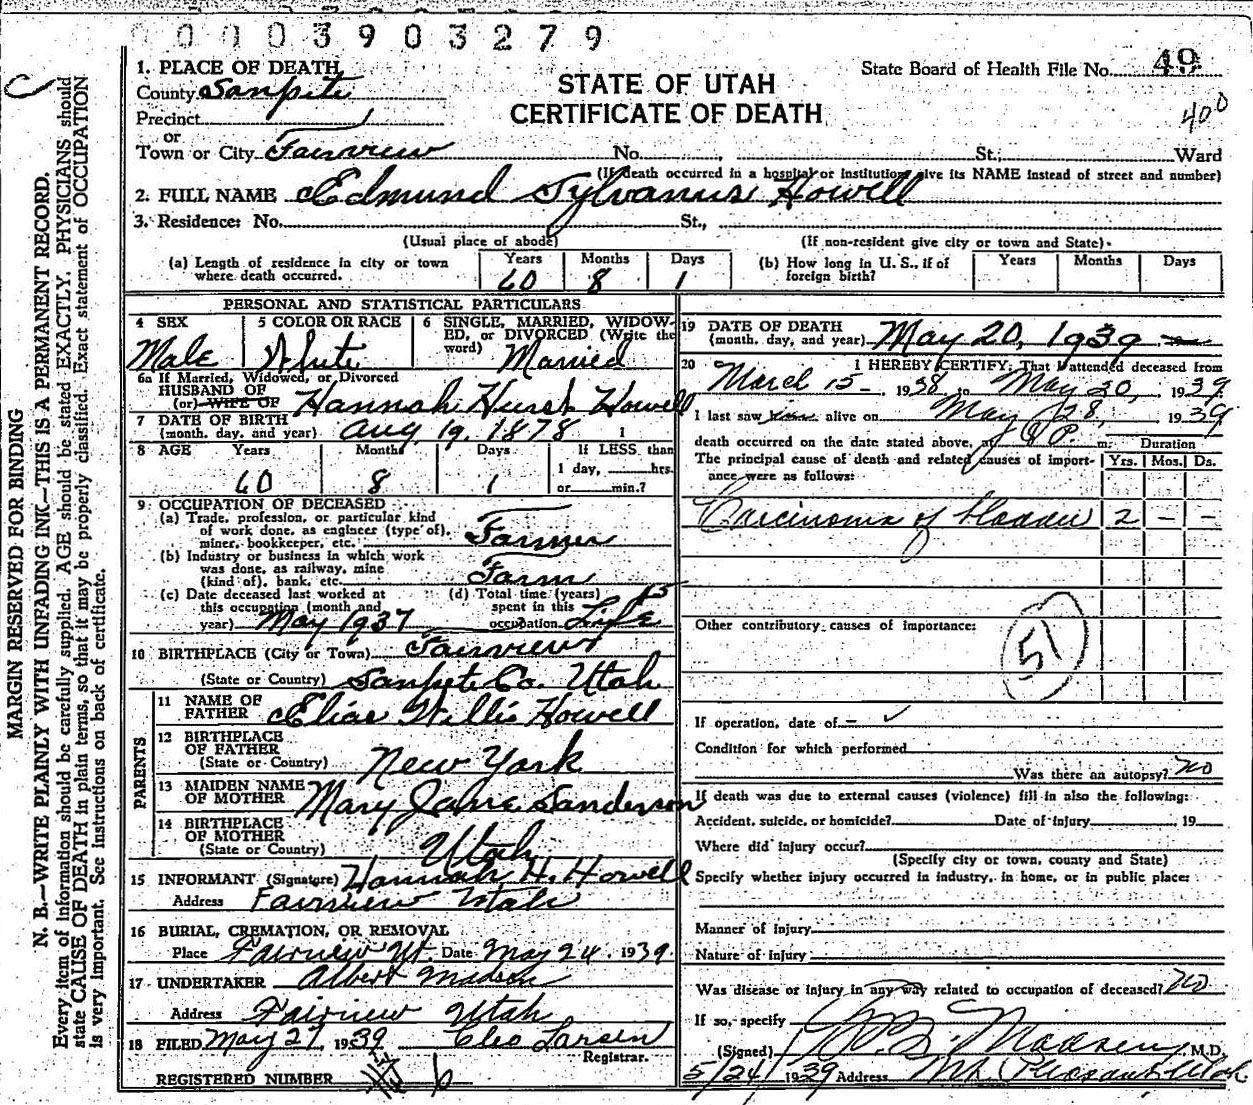 0 0 1 0 3 9 0 3 2 7 9
1. PLACE OF DEATH
County Sanpete
Precinct 1
or
Town or City Fairview No. , St.; Ward
STATE OF UTAH
CERTIFICATE OF DEATH
State Board of Health File No. 49
400
(If death occurred in a hospital or institution, give its NAME instead of street and number)
2. FULL NAME Edmund Sylvanus Howell
3. Residence: No. St.,
(Usual place of abode) (If non-resident give city or town and State)
(a) Length of residence in city or town where death occurred. Years 60 Months 8 Days 1
(b) How long in U. S., if of foreign birth? Years Months Days
PERSONAL AND STATISTICAL PARTICULARS
4 SEX
Male
5 COLOR OR RACE
White
6 SINGLE, MARRIED, WIDOW-
ED, or DIVORCED (Write the
word) Married
6a If Married, Widowed, or Divorced
HUSBAND OF
(or) WIFE OF Hannah Hurst Howell
7 DATE OF BIRTH
(month, day, and year) Aug 19, 1878
8 AGE Years Months Days If LESS than
1 day, hrs.
60 8 1 or min.?
9 OCCUPATION OF DECEASED
(a) Trade, profession, or particular kind
of work done, as engineer (type of),
miner, bookkeeper, etc. Farmer
(b) Industry or business in which work
was done, as railway, mine
(kind of), bank, etc. Farm
(c) Date deceased last worked at
this occupation (month and
year) May 1937
(d) Total time (years)
spent in this
occupation Life
10 BIRTHPLACE (City or Town) Fairview
(State or Country) Sanpete Co. Utah
PARENTS
11 NAME OF
FATHER Elias Willis Howell
12 BIRTHPLACE
OF FATHER
(State or Country) New York
13 MAIDEN NAME
OF MOTHER Mary Jane Sanderson
14 BIRTHPLACE
OF MOTHER
(State or Country) Utah
15 INFORMANT (Signature) Hannah H. Howell
Address Fairview Utah
16 BURIAL, CREMATION, OR REMOVAL
Place Fairview Ut. Date May 24, 1939.
17 UNDERTAKER Albert Madsen
Address Fairview Utah
18 FILED May 27, 1939 Cleo Larsen
Registrar.
REGISTERED NUMBER 6
19 DATE OF DEATH
(month, day, and year) May 20, 1939
20 I HEREBY CERTIFY, That I attended deceased from
March 15 1938 to May 20, 1939
I last saw alive on May 1939
death occurred on the date stated above, at 8 P. m. Duration
The principal cause of death and related causes of import-
ance were as follows: Yrs. Mos. Ds.
Carcinoma of bladder 2 - -
Other contributory causes of importance:
51
If operation, date of – ✓
Condition for which performed
Was there an autopsy? No
If death was due to external causes (violence) fill in also the following:
Accident, suicide, or homicide? Date of injury 19
Where did injury occur?
(Specify city or town, county and State)
Specify whether injury occurred in industry, in home, or in public place:
Manner of injury
Nature of injury
Was disease or injury in any way related to occupation of deceased? No
If so, specify
(Signed) Madsen, M.D.
5/24/1939 Address Mt. Pleasant Utah
MARGIN RESERVED FOR BINDING
N. B.—WRITE PLAINLY WITH UNFADING INK—THIS IS A PERMANENT RECORD.
Every item of information should be carefully supplied. AGE should be stated EXACTLY. PHYSICIANS should
state CAUSE OF DEATH in plain terms, so that it may be properly classified. Exact statement of OCCUPATION
is very important. See instructions on back of certificate.